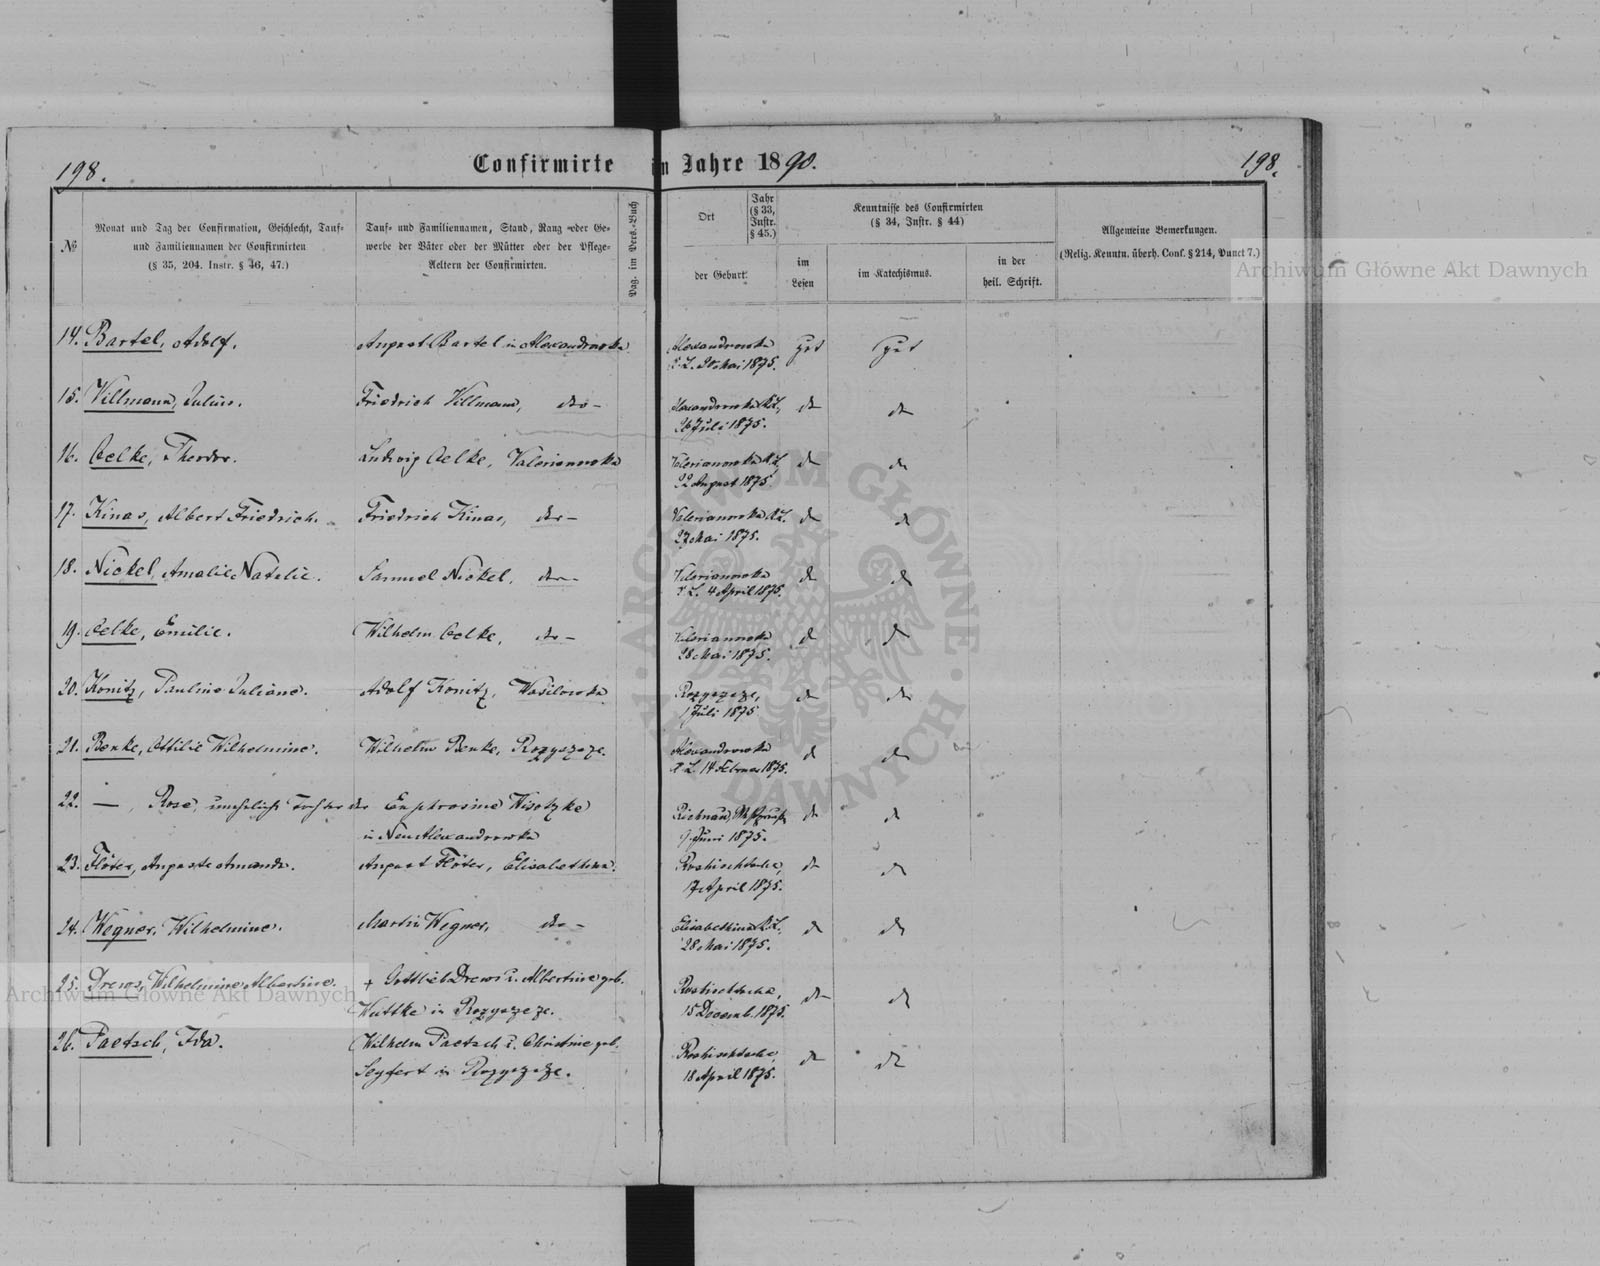 198.
Confirmirte im Jahre 1890.
198.
№
Monat und Tag der Confirmation, Geschlecht, Tauf-
und Familiennamen der Confirmirten
(§ 35, 204. Instr. § 46, 47.)
Tauf- und Familiennamen, Stand, Rang oder Ge-
werbe der Väter oder der Mütter oder der Pflege-
Aeltern der Confirmirten.
Pag. im Pers.-Buch
Ort
Jahr
(§ 33,
Instr.
§ 45.)
der Geburt.
Kenntnisse des Confirmirten
(§ 34, Instr. § 44)
im
Lesen
im Katechismus.
in der
heil. Schrift.
Allgemeine Bemerkungen.
(Relig. Kenntn. überh. Conf. § 214, Punct 7.)
Archiwum Główne Akt Dawnych
14. Bartel, Adolf. August Bartel in Alexandrowka Alexandrowka gut gut
K. L. 20 Mai 1875.
15. Villmann, Julius. Friedrich Villmann, dto - Alexandrowka K. L. do do
26 Juli 1875.
16. Oelke, Theodor. Ludwig Oelke, Valerianowka Valerianowka K. L. do do
22 August 1875.
17. Kinas, Albert Friedrich. Friedrich Kinas, dto - Valerianowka K. L. do do
27 Mai 1875.
18. Nickel, Amalie Natalie. Samuel Nickel, dto - Valerianowka do do
K. L. 4 April 1875.
19. Oelke, Emilie. Wilhelm Oelke, dto - Valerianowka do do
28 Mai 1875.
20. Konitz, Pauline Juliane. Adolf Konitz, Wasilowka Rozyszcze, do do
1 Juli 1875
21. Benke, Ottilie Wilhelmine. Wilhelm Benke, Rozyszcze. Alexandrowka do do
K. L. 14 Februar 1875.
22. — , Rosa, uneheliche Tochter der Euphrosine Wisotzke Richnau, Westpreuß. do do
in Neu Alexandrowka 9. Juni 1875.
23. Flöter, Auguste Amanda. August Flöter, Elisabethina. Roshischtsche, do do
17 April 1875.
24. Wegner, Wilhelmine. Martin Wegner, dto - Elisabethina K. L. do do
28 Mai 1875.
25. Drews, Wilhelmine Albertine. + Gottlieb Drews u. Albertine geb. Roshischtsche, do do
Wuttke in Rozyszcze. 15 Decemb. 1875.
26. Paetsch, Ida. Wilhelm Paetsch u. Christine geb. Roshischtsche, do do
Seyfert in Rozyszcze. 18 April 1875.
Archiwum Główne Akt Dawnych
ARCHIWUM GŁÓWNE AKT DAWNYCH